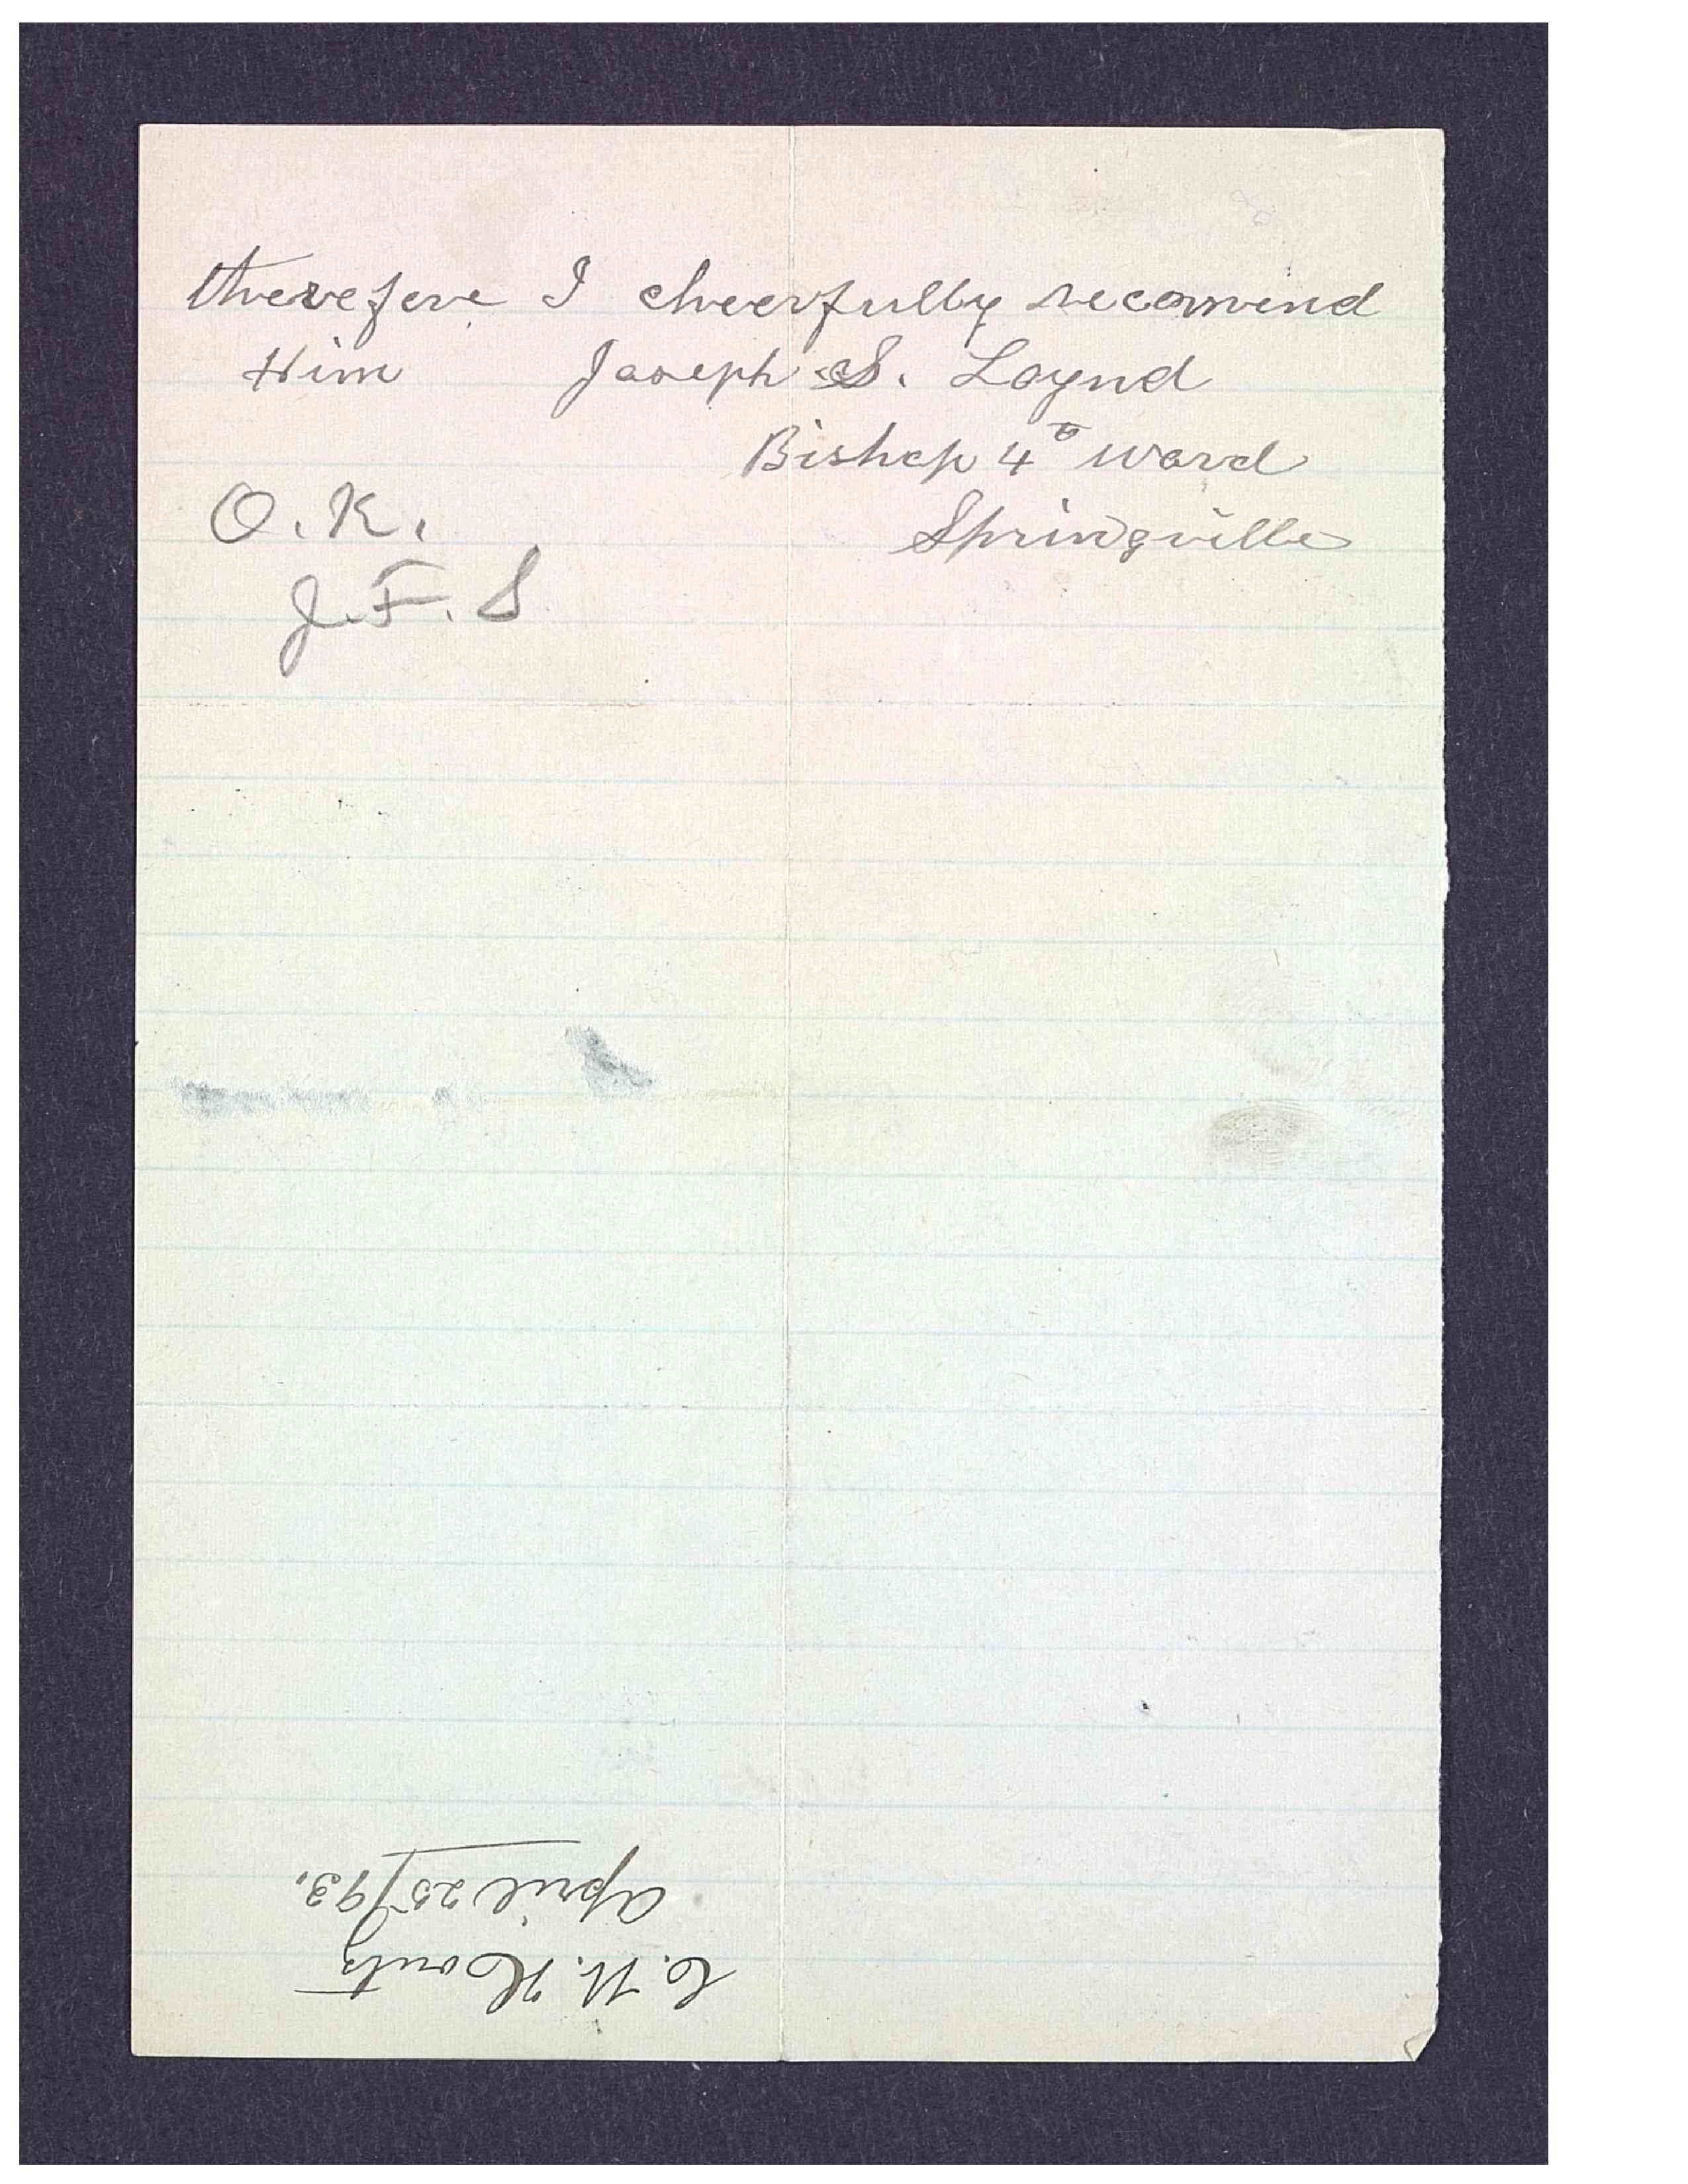 therefore I cheerfully recomend
Him Joseph S. Loynd
Bishop 4th ward
Springville
O.K.
J.F.S
C. N. Houtz
April 25/93.